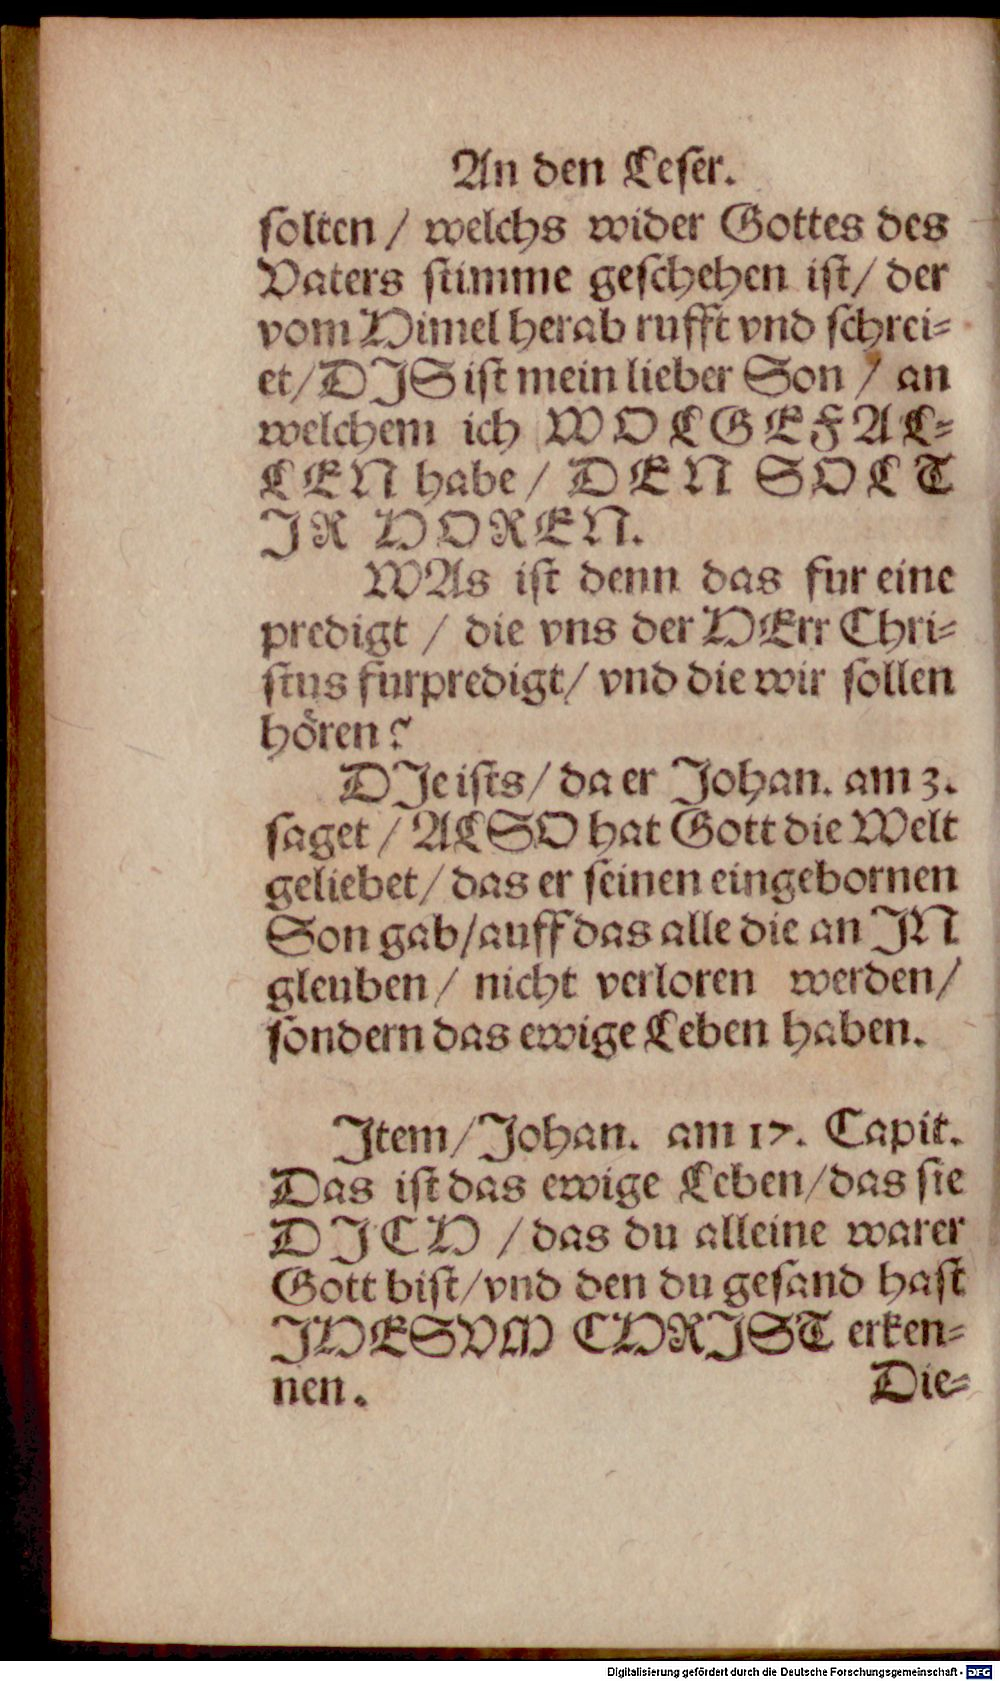 An den Leser.
solten / welchs wider Gottes des
Vaters stimme geschehen ist / der
vom Himel herab rufft vnd schrei-
et / DJS ist mein lieber Son / an
welchem ich WOLGEFAL-
LEN habe / DEN SOLT
JR HOREN.
WAs ist denn das fur eine
predigt / die vns der HErr Chri-
stus furpredigt / vnd die wir sollen
hören?
DJe ists / da er Johan. am 3.
saget / ALSO hat Gott die Welt
geliebet / das er seinen eingebornen
Son gab / auff das alle die an JN
gleuben / nicht verloren werden /
sondern das ewige Leben haben.
Jtem / Johan. am 17. Capit.
Das ist das ewige Leben / das sie
DJCH / das du alleine warer
Gott bist / vnd den du gesand hast
JHESVM CHRJST erken-
nen.
Die-
Digitalisierung gefördert durch die Deutsche Forschungsgemeinschaft - DFG